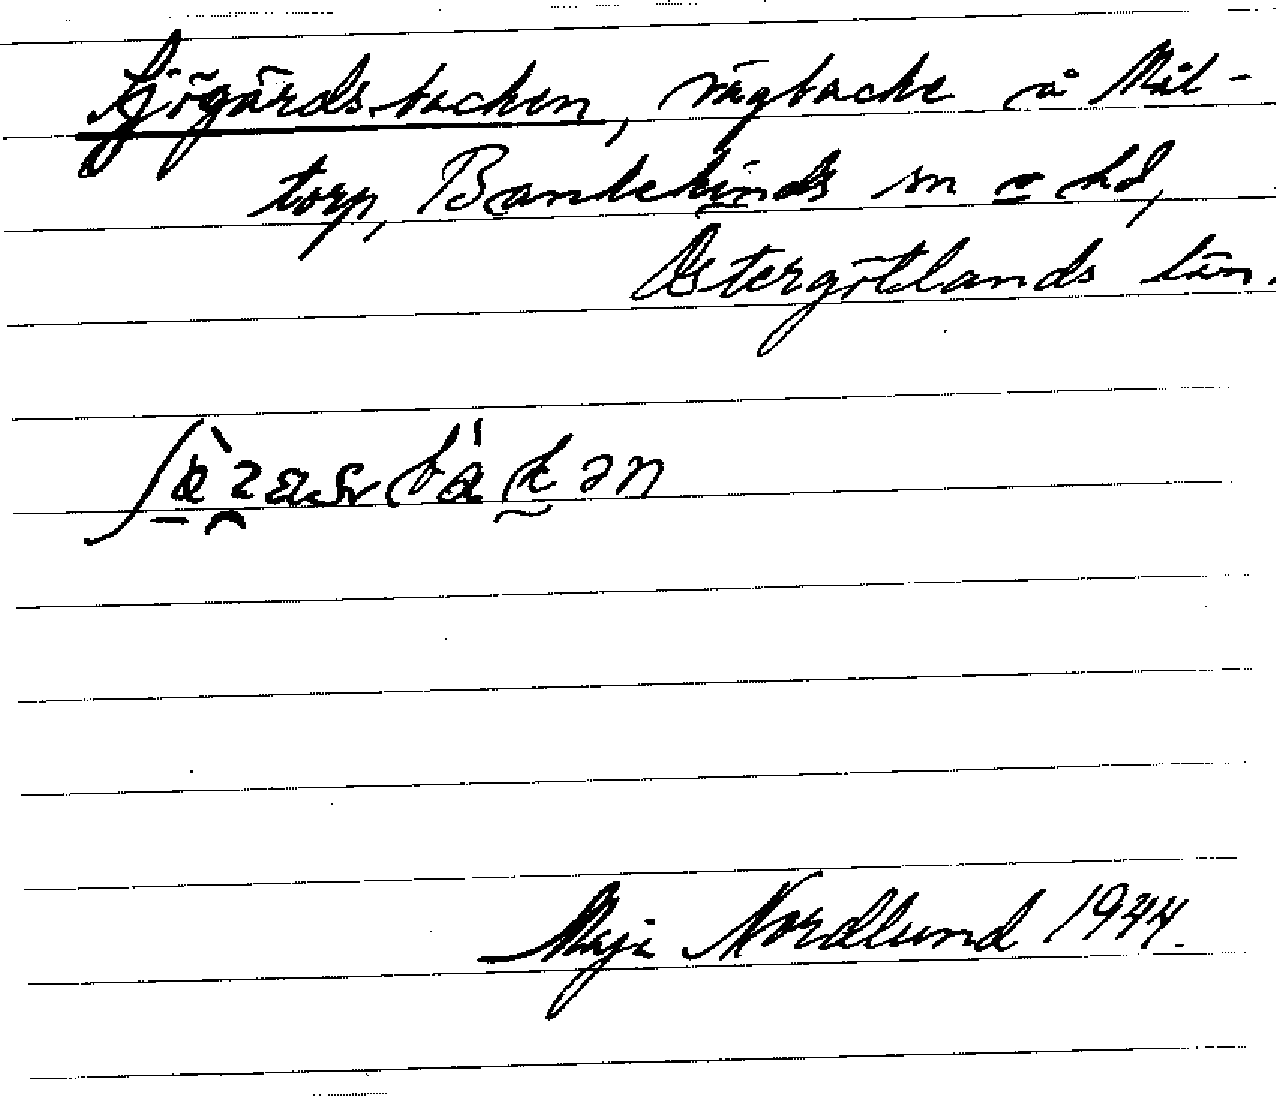 Sjögärdsbacken, vägbacke å Mål-
torp, Bankekinds sn o hd,
Östergötlands län.
Maja Nordlund 1944.